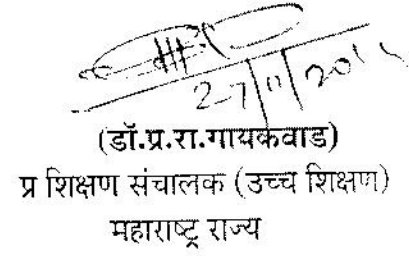 27/11/20
(डॉ.प्र.रा.गायकवाड)
प्र शिक्षण संचालक (उच्च शिक्षण)
महाराष्ट्र राज्य